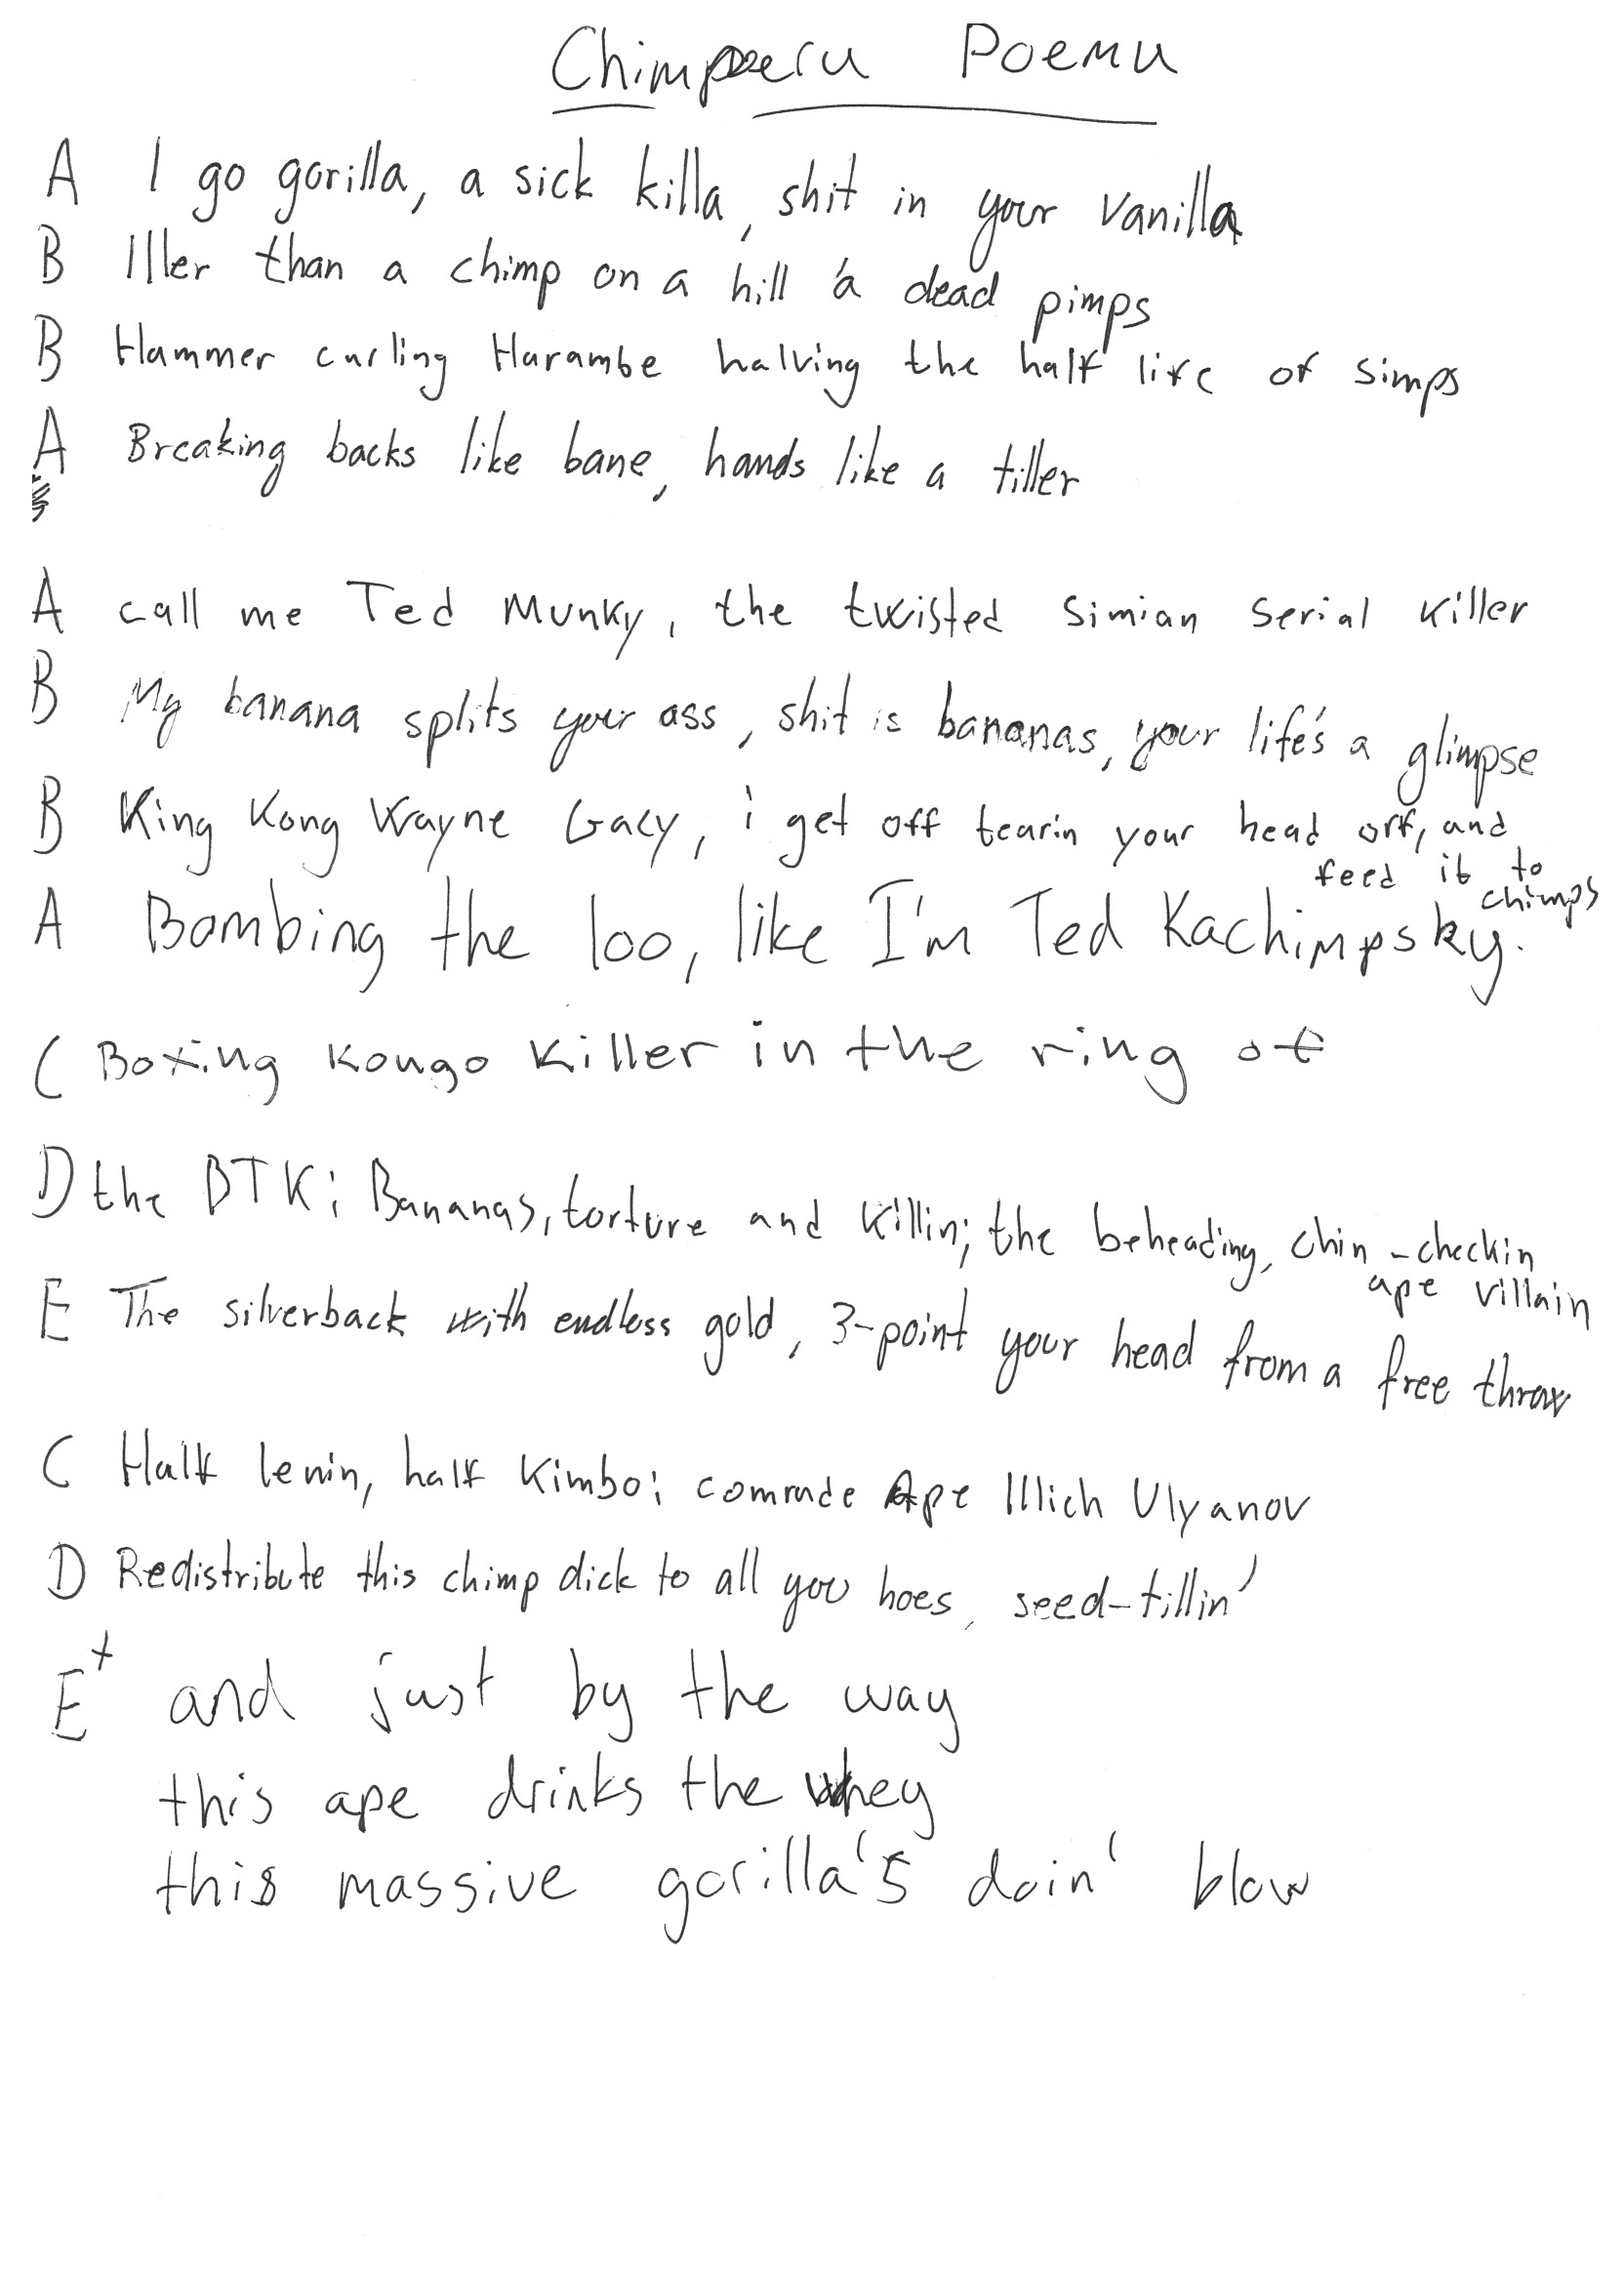 Chimperu Poemu
A I go gorilla, a sick killa, shit in your vanilla
B Iller than a chimp on a hill 'a dead pimps
B Hammer curling Harambe halving the half life of simps
A Breaking backs like bane, hands like a tiller
A call me Ted Munky, the twisted simian serial killer
B My banana splits your ass, shit is bananas, your life's a glimpse
B King Kong Wayne Gacy, i get off tearin your head off, and
feed it to
chimps
A Bombing the loo, like I'm Ted Kachimpsky.
C Boxing Kongo Killer in the ring of
D the BTK: Bananas, torture and Killin; the beheading, chin-checkin
ape villain
E The silverback with endless gold, 3-point your head from a free throw
C Half lenin, half Kimbo: comrade Ape Illich Ulyanov
D Redistribute this chimp dick to all you hoes, seed-tillin'
E+ and just by the way
this ape drinks the whey
this massive gorilla's doin' blow